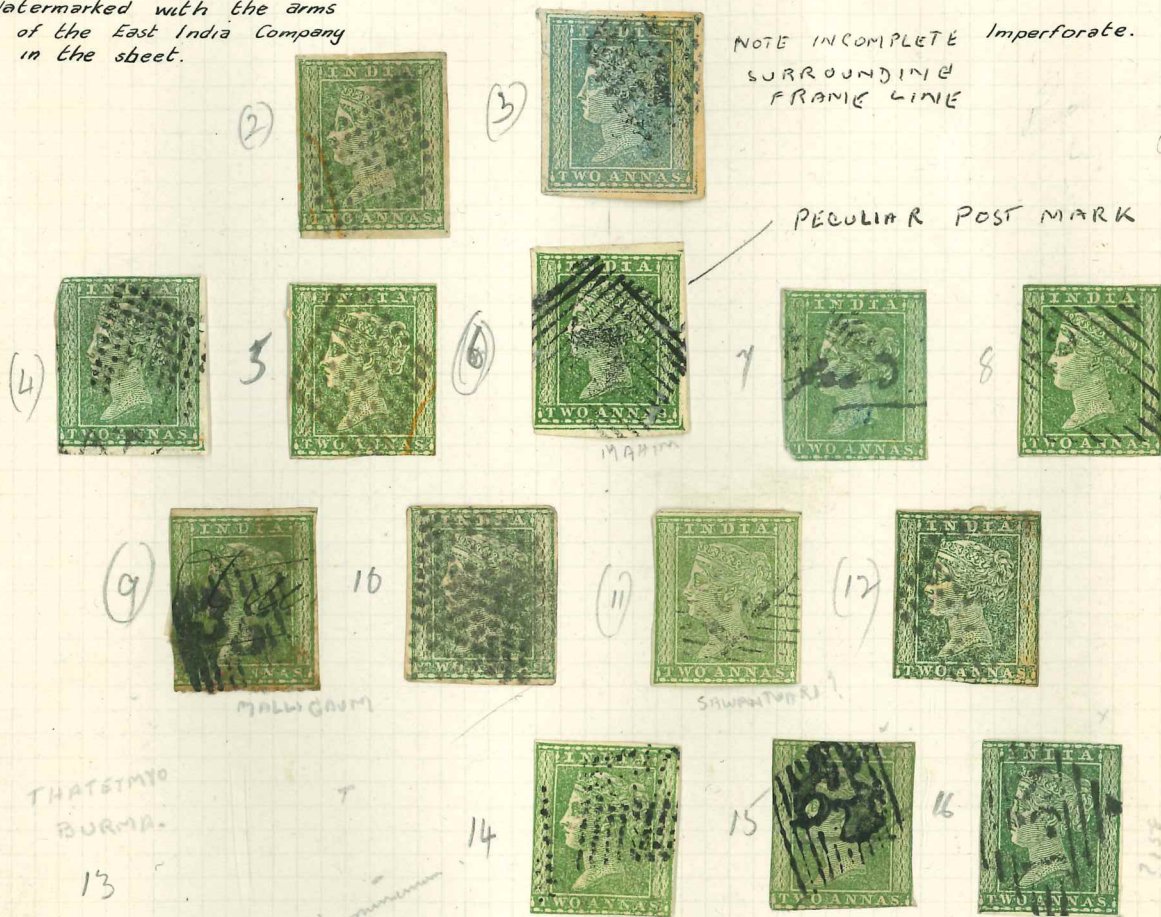 Watermarked with the arms
of the East India Company
in the sheet.
NOTE INCOMPLETE
SURROUNDING
FRAME LINE
Imperforate.
(2)
INDIA
TWO ANNAS
(3)
INDIA
TWO ANNAS
PECULIAR POST MARK
(4)
INDIA
TWO ANNAS
5
INDIA
TWO ANNAS
(6)
INDIA
TWO ANNAS
MAHIM
7
INDIA
TWO ANNAS
8
INDIA
TWO ANNAS
(9)
INDIA
TWO ANNAS
MALLIGAUM
10
INDIA
TWO ANNAS
(11)
INDIA
TWO ANNAS
SAWANTWARI?
(12)
INDIA
TWO ANNAS
THATETMYO
BURMA.
13
14
INDIA
TWO ANNAS
15
INDIA
TWO ANNAS
16
INDIA
TWO ANNAS